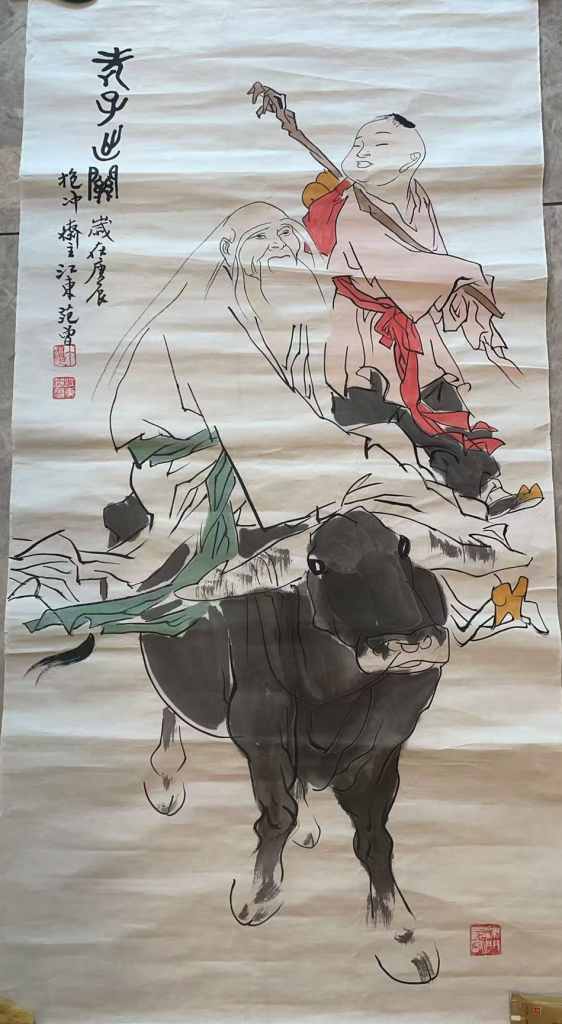 老子出關
歲在庚辰
抱冲齋主江東范曾